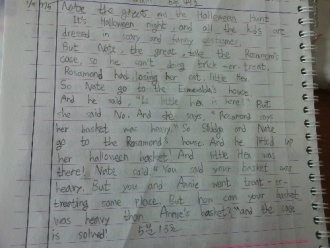 Nate the great and the Halloween Hunt
It's Halloween night and all the kids are
dressed in scary and funny costumes.
But Nate the great, take the Rosamond's
case, so he can't doing trick-or-treat.
Rosamond had losing her cat, little Hex.
So Nate go to the Esmeralda's house.
And he said, "Is little Hex is here?" But
she said No. And he says, "Rosamond says
her basket was heavy." So Sludge and Nate
go to the Rosamond's house. And he lifted up
her halloween basket. And little Hex was
there! Nate said, "You said your basket was
heavy. But you and Annie went treat-or-
treating same place. But how can your basket
was heavy than Annie's basket?" and the case
is solved!